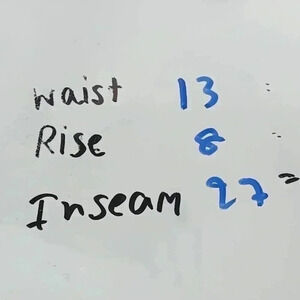 waist 13
Rise 8
Inseam 27